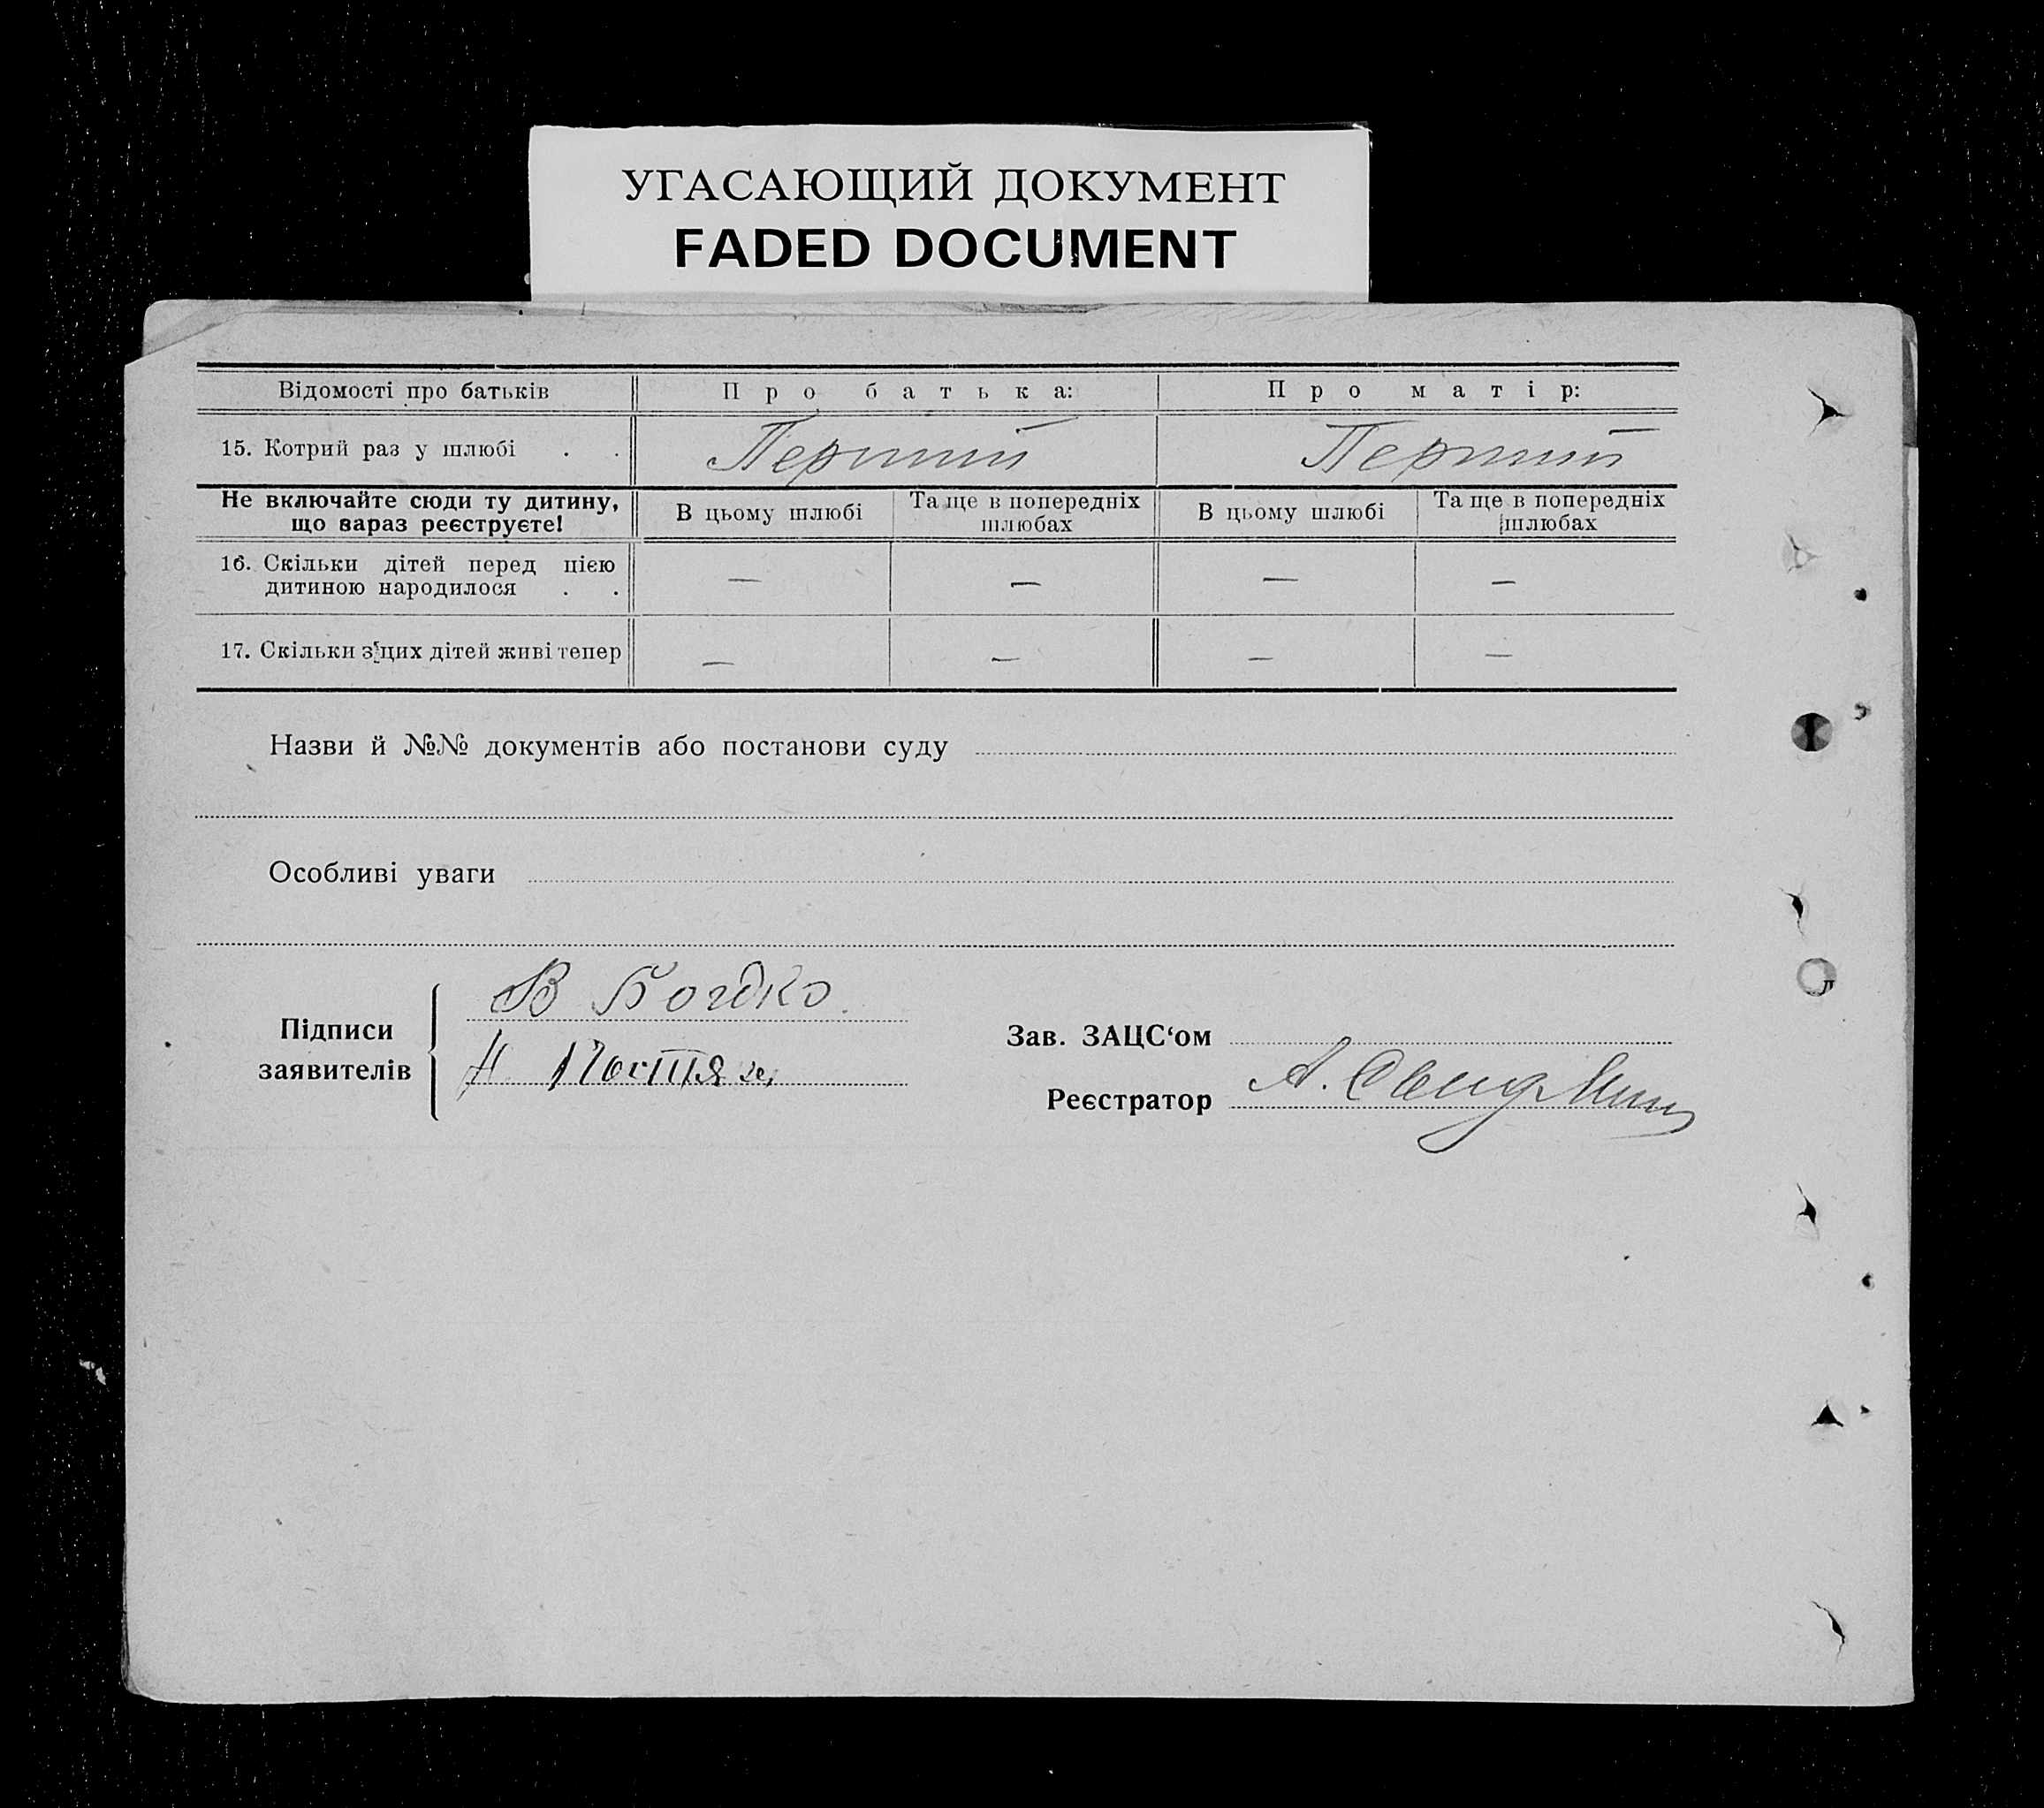 УГАСАЮЩИЙ ДОКУМЕНТ
FADED DOCUMENT
Відомості про батьків Про батька: Про матір:
15. Котрий раз у шлюбі . . Перший Перший
Не включайте сюди ту дитину, що вараз реєструєте! В цьому шлюбі Та ще в попередніх шлюбах В цьому шлюбі Та ще в попередніх шлюбах
16. Скільки дітей перед цією
дитиною народилося . . — — — —
17. Скільки з цих дітей живі тепер — — — —
Назви й №№ документів або постанови суду
Особливі уваги
Підписи
заявителів
В Богдко
Н.
Зав. ЗАЦС‘ом
Реєстратор А.